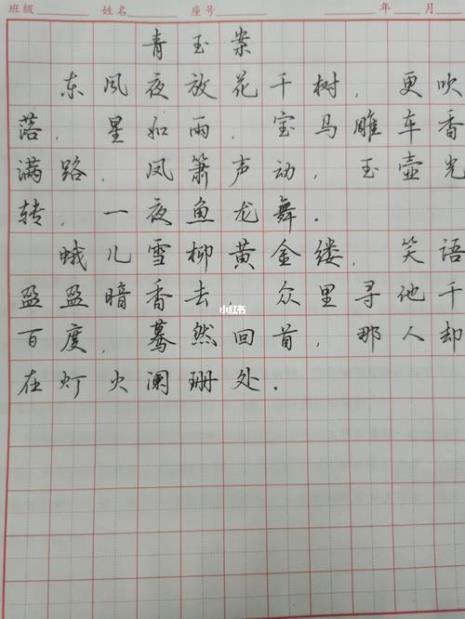 班级 姓名 座号 年 月
青玉案
东风夜放花千树，更吹
落，星如雨，宝马雕车香
满路，凤箫声动，玉壶光
转，一夜鱼龙舞．
蛾儿雪柳黄金缕，笑语
盈盈暗香去，众里寻他千
小红书
百度，蓦然回首，那人却
在灯火阑珊处．